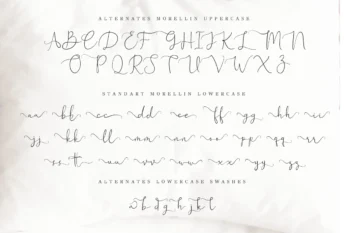 ALTERNATES MORELLIN UPPERCASE
A B C D E F G H I J K L M N
O P Q R S T U V W X Z
STANDART MORELLIN LOWERCASE
aa bb cc dd ee ff gg hh ii
jj kk ll mm nn oo pp qq rr
ss tt uu vv ww xx yy zz
ALTERNATES LOWERCASE SWASHES
b d g h j k l